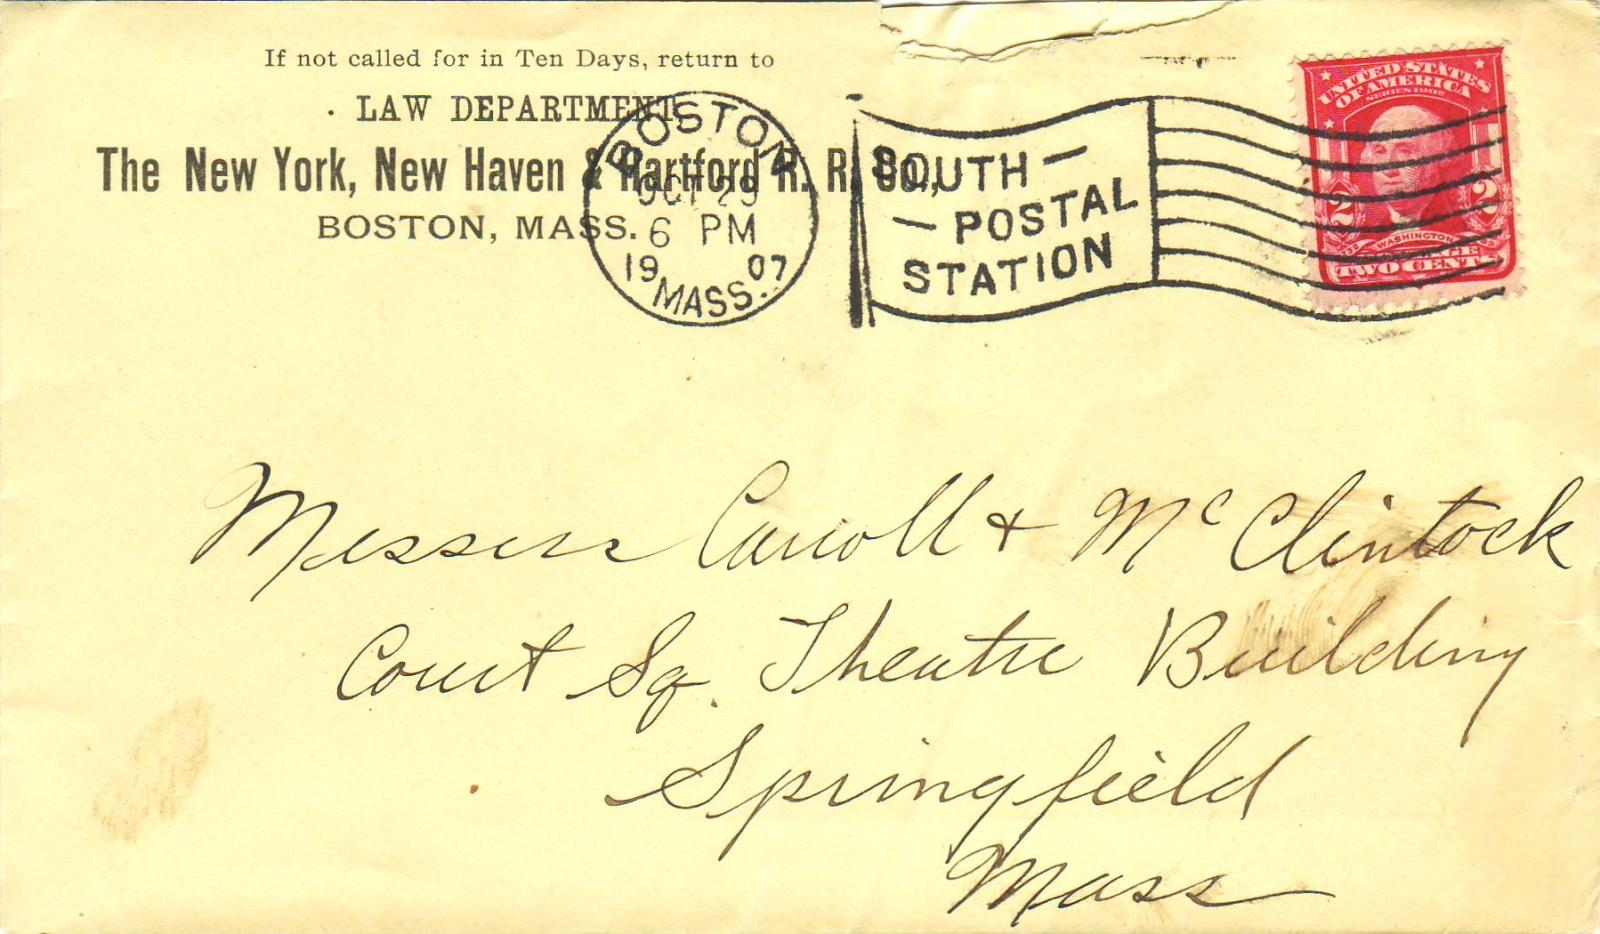 If not called for in Ten Days, return to
LAW DEPARTMENT,
The New York, New Haven & Hartford R. R. Co.,
BOSTON, MASS.
BOSTON
OCT 29
6 PM
19 07
MASS.
SOUTH
POSTAL
STATION
UNITED STATES
OF AMERICA
SERIES 1902
2 2
WASHINGTON
TWO CENTS
Messrs Carroll & McClintock
Court Sq. Theatre Building
Springfield
Mass